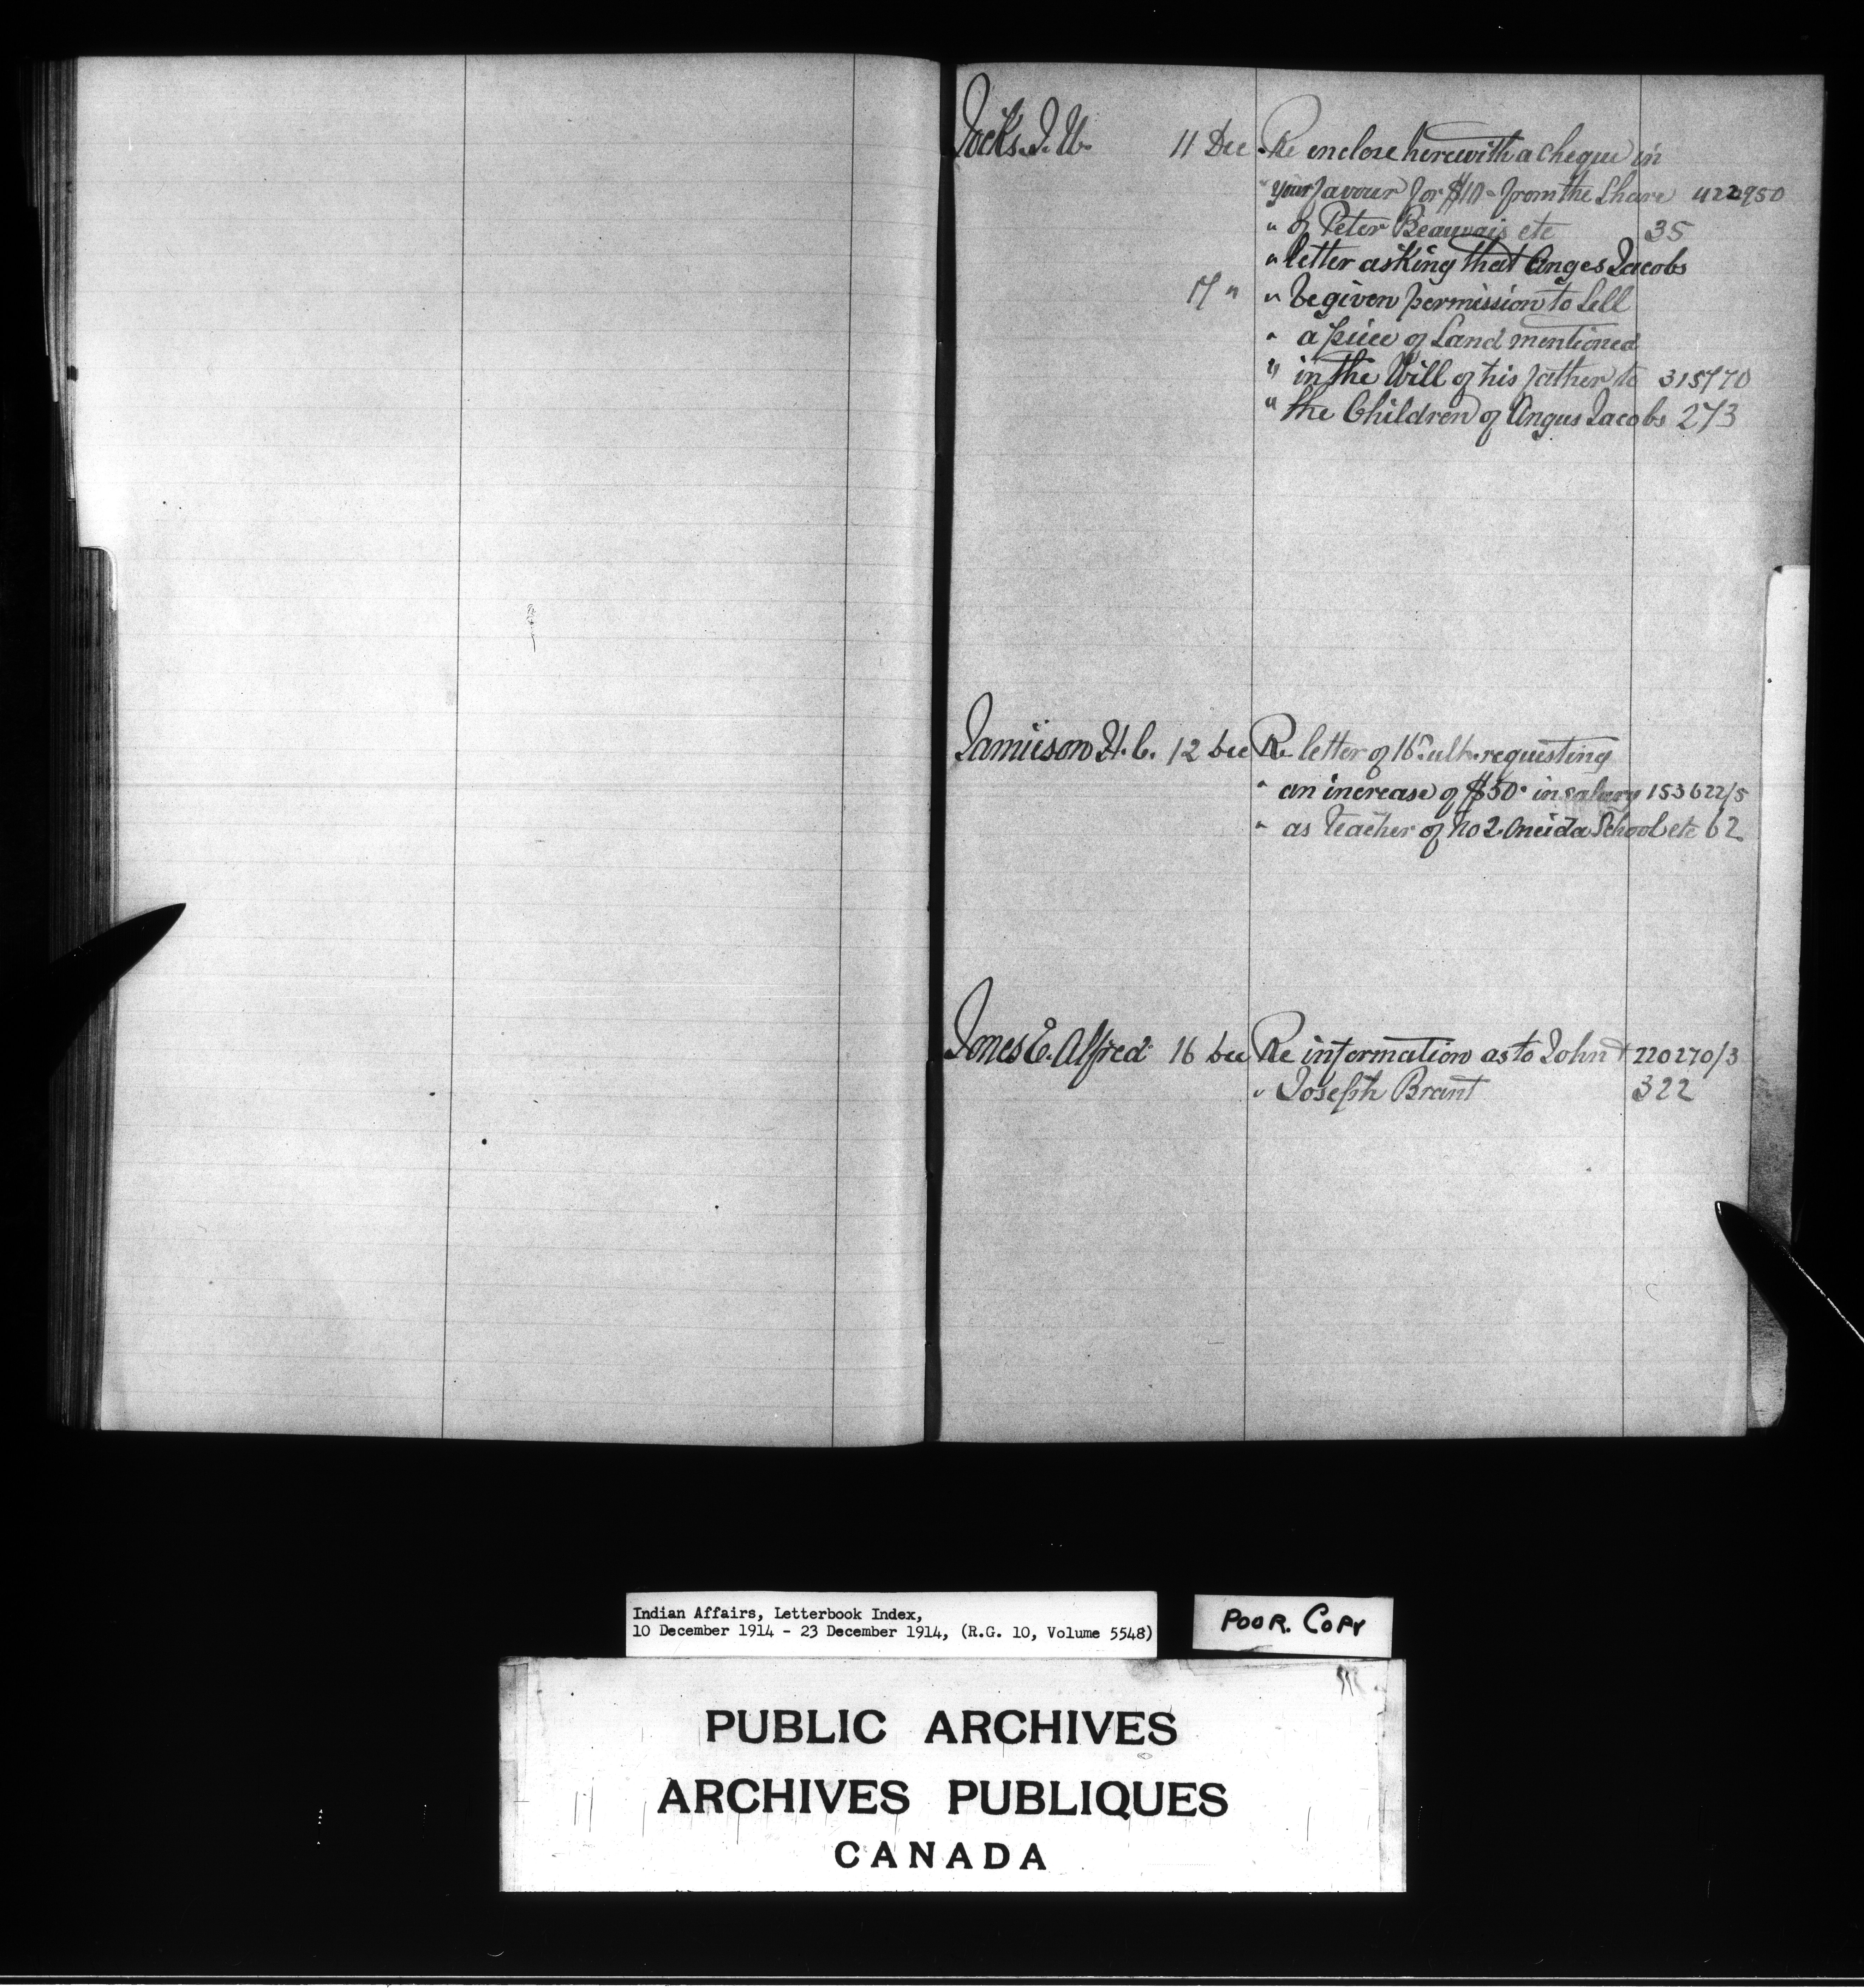 Jocks. J. W. 11 Dec Re enclose herewith a cheque in
" your favour for $10 - from the Share 422950
" of Peter Beauvais etc 35
" letter asking that Anges Jacobs
17 " " be given permission to Sell
" a piece of Land mentioned
" in the Will of his father to 315770
" the Children of Angus Jacobs 273
Jamieson H. C. 12 Dec Re letter of 16th ult. requesting
" an increase of $50 in salary 153622/5
" as teacher of No 2 Oneida School etc 62
Jones E. Alfred 16 Dec Re information as to John + 220270/3
" Joseph Brant 322
Indian Affairs, Letterbook Index,
10 December 1914 - 23 December 1914, (R.G. 10, Volume 5548)
POOR. COPY
PUBLIC ARCHIVES
ARCHIVES PUBLIQUES
CANADA